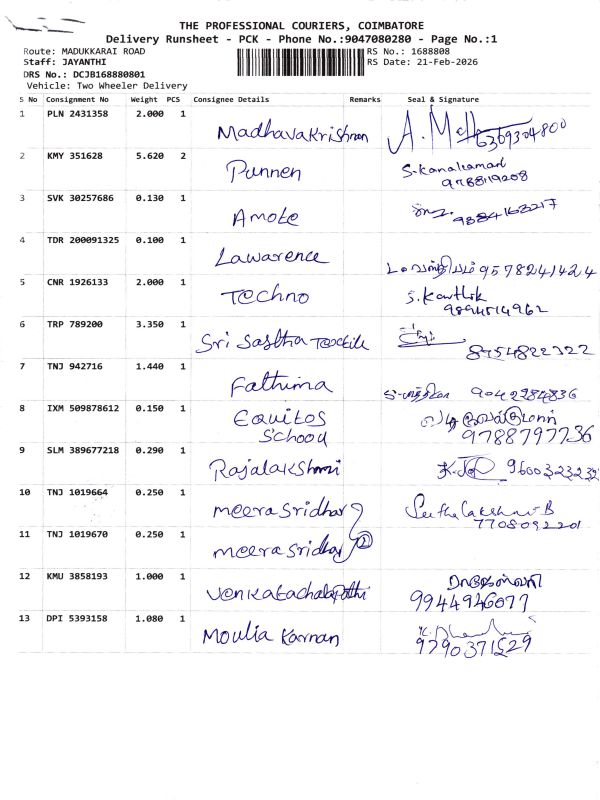 THE PROFESSIONAL COURIERS, COIMBATORE
Delivery Runsheet - PCK - Phone No.:9047080280 - Page No.:1
Route: MADUKKARAI ROAD
RS No.: 1688808
Staff: JAYANTHI
RS Date: 21-Feb-2026
DRS No.: DCJB168880801
Vehicle: Two Wheeler Delivery
S No Consignment No Weight PCS Consignee Details Remarks Seal & Signature
1 PLN 2431358 2.000 1 Madhavakrishnan 6369304800
2 KMY 351628 5.620 2 Punnen S.Kanakamani
9788119208
3 SVK 30257686 0.130 1 Amote 9884163217
4 TDR 200091325 0.100 1 Lawarence 9578241424
5 CNR 1926133 2.000 1 Techno S.Karthik
9894514962
6 TRP 789200 3.350 1 Sri Sastha Textile
8754822322
7 TNJ 942716 1.440 1 Fathima 9042284836
8 IXM 509878612 0.150 1 Equitos
School 9788797736
9 SLM 389677218 0.290 1 Rajalakshmi 9600323232
10 TNJ 1019664 0.250 1 meera sridhar Seethalakshmi B
7708092201
11 TNJ 1019670 0.250 1 meera sridhar 2
12 KMU 3858193 1.000 1 Venkatachalapathi
9944946077
13 DPI 5393158 1.080 1 Moulia Kannan
9790371529